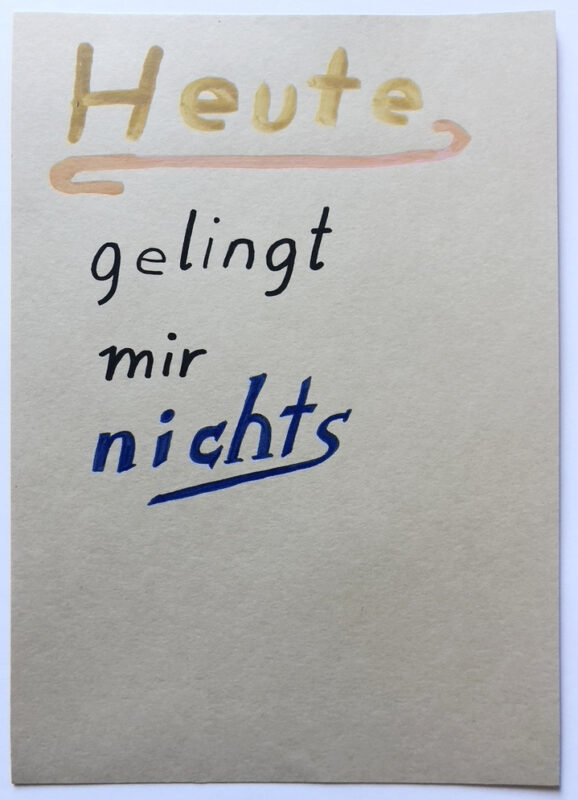 Heute
gelingt
mir
nichts